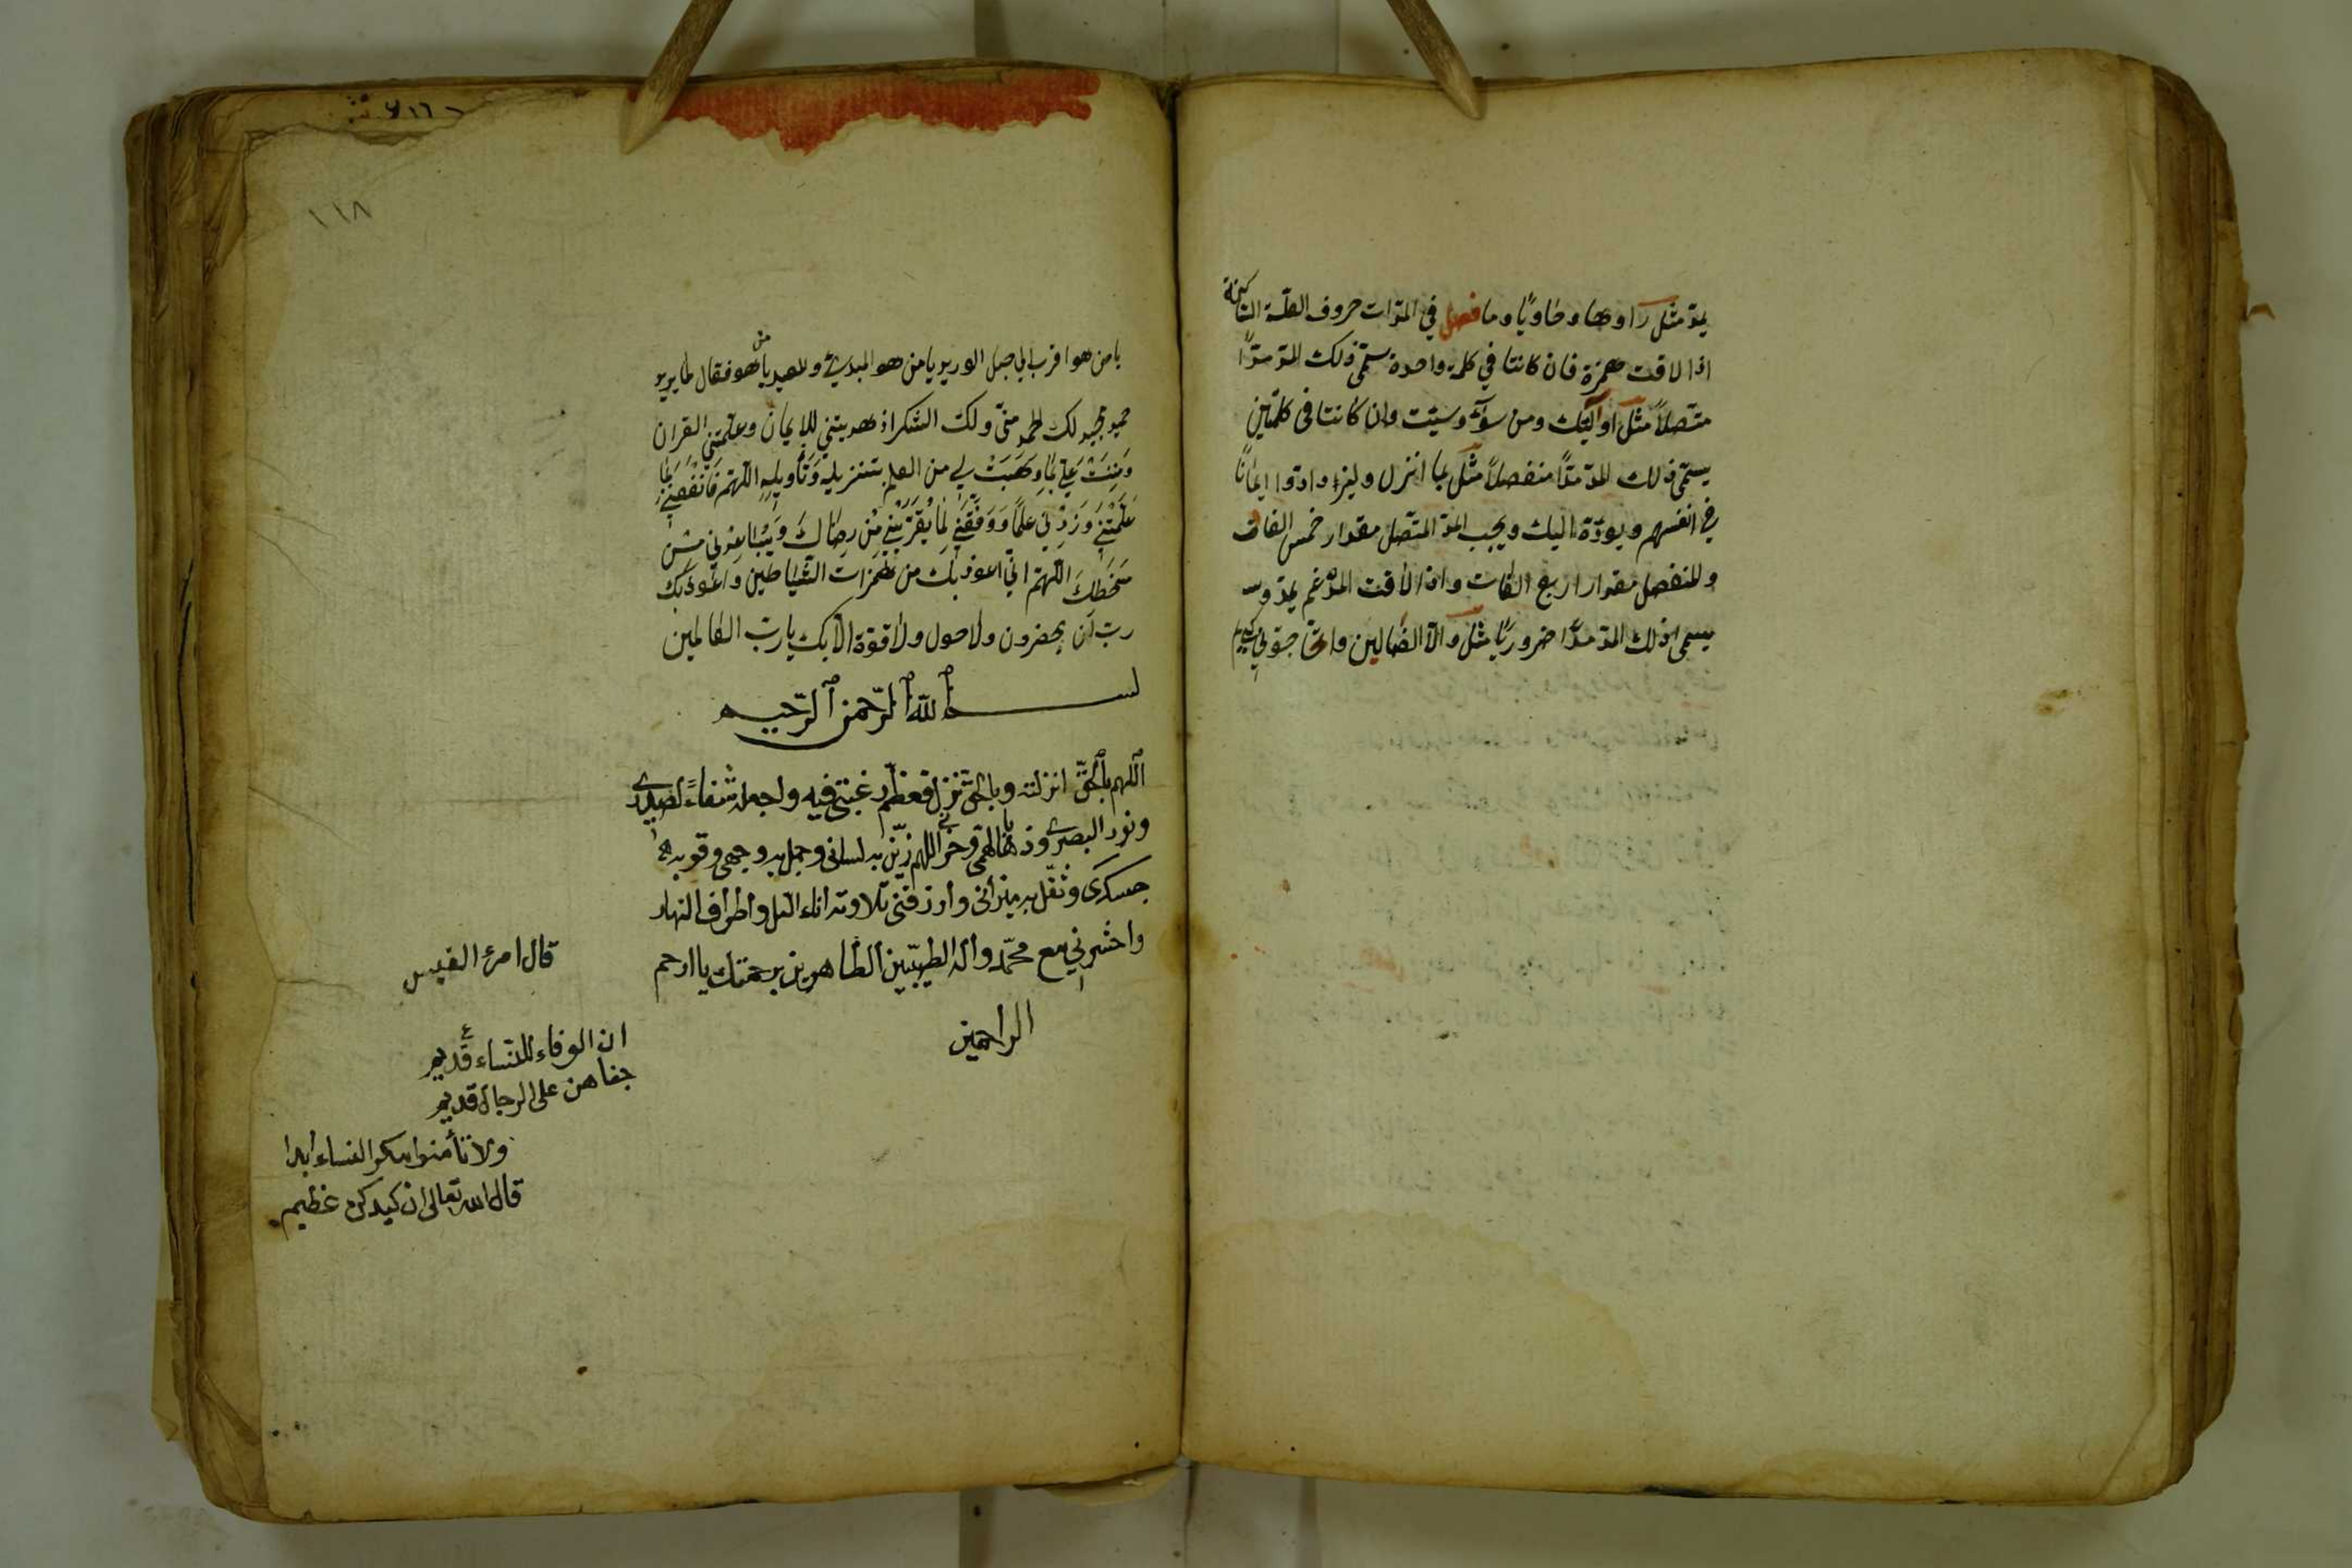 يمدّ مثل را وها وطا ويا وما فصل في المدّات حروف العلّة الساكنة
اذا لاقت همزة فان كانتا في كلمة واحدة يسمّى ذلك المدّ مدّاً
متّصلاً مثل اولٓئك ومن سوٓء وسيئت وان كانتا في كلمتين
يسمّى ذلك المدّ مدّاً منفصلاً مثل بما انزل وادوا ايماناً
في انفسهم ويودّه اليك ويجب المدّ المتّصل مقدار خمس الفات
والمنفصل مقدار اربع الفات واذا لاقت المدغم يمدّ و
يسمى ذلك المدّ مدّاً ضروريّاً مثل ولا الضالين
يا من هو اقرب الي حبل الوريد يا من هو المبدئ والمعيد يا من هو فعّال لما يريد
حميد مجيد لك الحمد منّي ولك الشكر اذ هديتني للايمان وعلّمتني القران
وَمننتَ عَليّ بمٰا وَهَبَتْ لي من العلم بتنزيله وَتأويلِهِ اللّهمّ فَانْفَعْني بمٰا
عَلّمْتَني وَزِدْني علماً وَوَفّقني لِمٰا يُقرّبُني مِن رِضٰاكَ وَيُباعِدني مِن
سَخَطِكَ اللّهمّ انّي اعوذ بك من همزات الشّياطين واعوذ بك
ربّ ان يحضرون ولا حول ولا قوّة الّا بك يا ربّ العالمين
بسم الله الرّحمن الرّحيم
اللهم بالحقّ انزلته وبالحق تنزل فعظّم رغبتي فيه واجعله شفاءً لصدري
ونور البصري وذهابا لهمي وحزني اللهم زيّن به لساني وجمل به وجهي وقو به
جسدي وثقّل به ميزاني وارزقني تلاوته اناء الليل واطراف النهار
واحشرني مع محمّد واله الطيبّين الطاهرين برحمتك يا ارحم
الراحمين
١١٨
قال امرء القيس
ان الوفاء للنّساء قديم
جفاهن على الرجال قديم
ولا تأمنوا مكر النساء ابدا
قال الله تعالى ان كيدكن عظيم